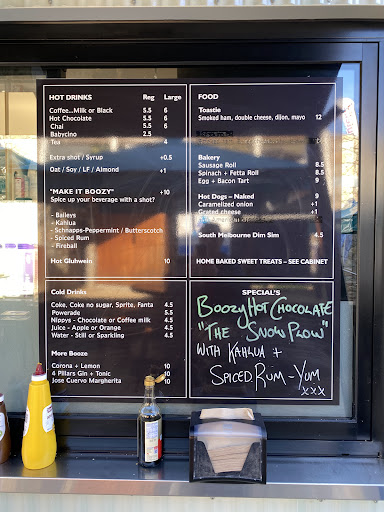 HOT DRINKS Reg Large
Coffee...Milk or Black 5.5 6
Hot Chocolate 5.5 6
Chai 5.5 6
Babycino 2.5
Tea 4
Extra shot / Syrup +0.5
Oat / Soy / LF / Almond +1
"MAKE IT BOOZY" +10
Spice up your beverage with a shot?
- Baileys
- Kahlua
- Schnapps-Peppermint / Butterscotch
- Spiced Rum
- Fireball
Hot Gluhwein 10
FOOD
Toastie
Smoked ham, double cheese, dijon, mayo 12
Bakery
Sausage Roll 8.5
Spinach + Fetta Roll 8.5
Egg + Bacon Tart 9
Hot Dogs – Naked 9
Caramelized onion +1
Grated cheese +1
South Melbourne Dim Sim 4.5
HOME BAKED SWEET TREATS – SEE CABINET
Cold Drinks
Coke, Coke no sugar, Sprite, Fanta 4.5
Powerade 5.5
Nippys - Chocolate or Coffee milk 4.5
Juice - Apple or Orange 4.5
Water - Still or Sparkling 4.5
More Booze
Corona + Lemon 10
4 Pillars Gin + Tonic 10
Jose Cuervo Margherita 10
SPECIAL'S
BOOZY HOT CHOCOLATE
"THE SNOW PLOW"
WITH KAHLUA +
SPICED RUM - YUM
xxx